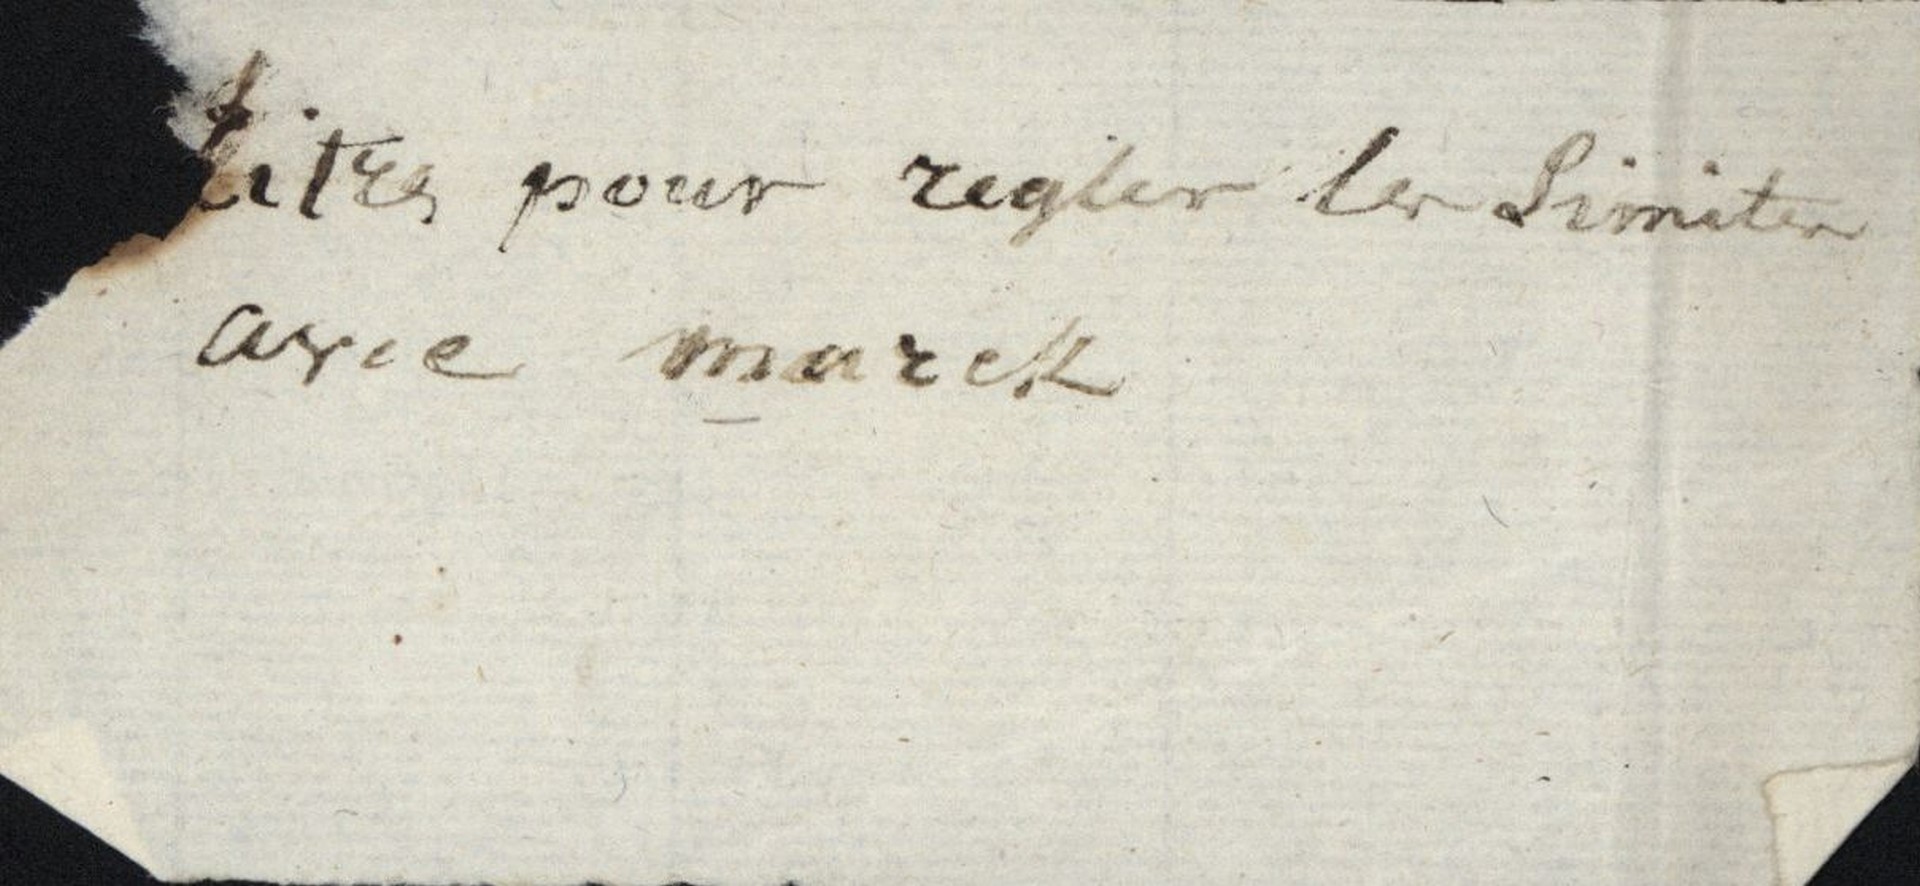 titres pour regler les Limites
avec marck